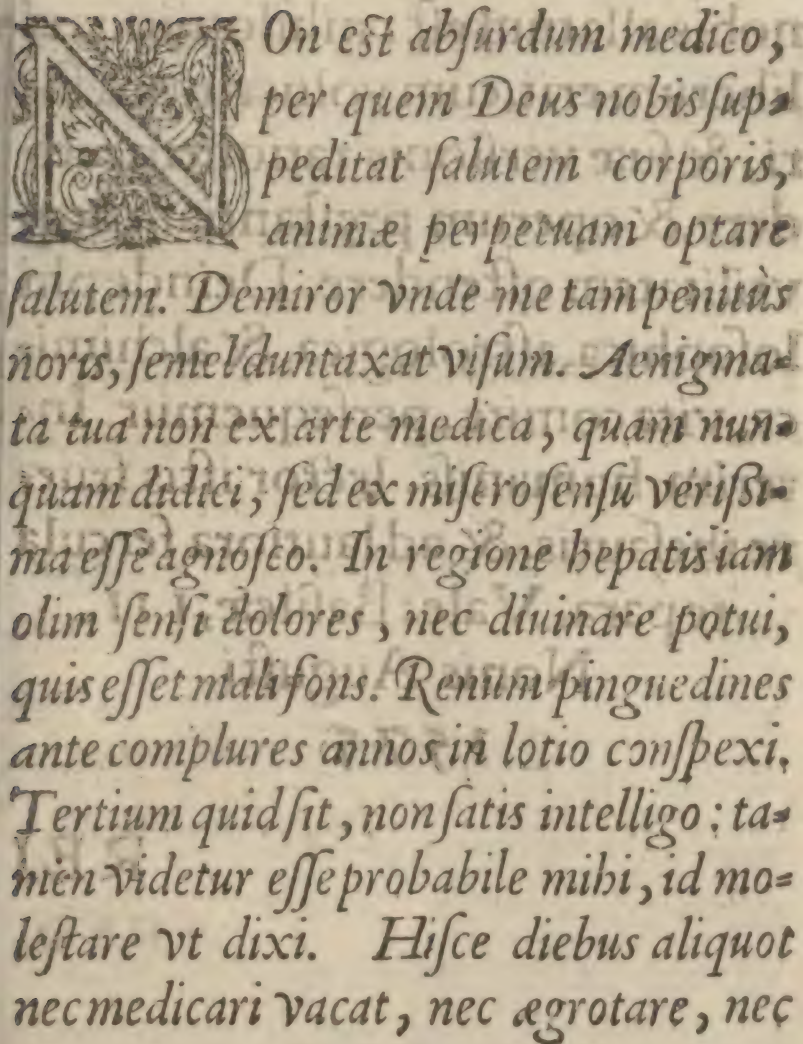 NOn est absurdum medico,
per quem Deus nobis sup-
peditat salutem corporis,
animæ perpetuam optare
salutem. Demiror vnde me tam penitùs
noris, semel duntaxat visum. Aenigma-
ta tua non ex arte medica, quam nun-
quam didici, sed ex misero sensu verissi-
ma esse agnosco. In regione hepatis iam
olim sensi dolores, nec diuinare potui,
quis esset mali fons. Renum pinguedines
ante complures annos in lotio conspexi.
Tertium quid sit, non satis intelligo; ta-
men videtur esse probabile mihi, id mo-
lestare vt dixi. Hisce diebus aliquot
nec medicari vacat, nec ægrotare, nec